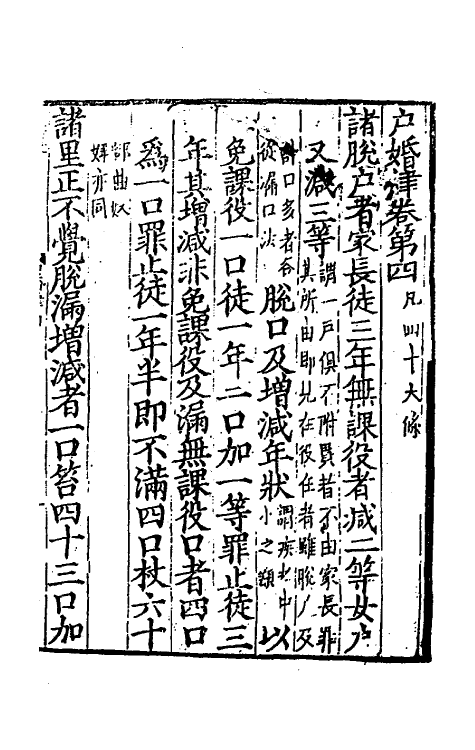 户婚律卷第四凡四十六條
諸脫户者家長徒三年無課役者減二等女户
又減三等謂一戶俱不附貫若不由家長罪其所由即見在役任者雖脫户及
計口多者各從漏口法脫口及增減年狀謂疾老中小之類以
免課役一口徒一年二口加一等罪止徒三
年其增減非免課役及漏無課役口者四口
爲一口罪止徒一年半即不滿四口杖六十
部曲奴婢亦同
諸里正不覺脫漏增減者一口笞四十三口加